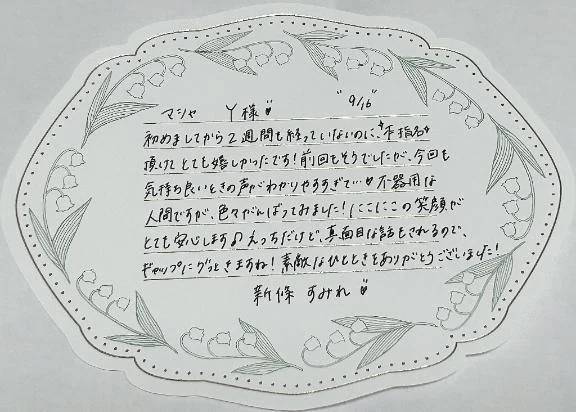 マシャ Y様 "9/16"
初めましてから2週間も経っていないのに、本指名
頂けてとても嬉しかったです!前回もそうでしたが、今回も
気持ち良いときの声がわかりやすすぎて… 不器用な
人間ですが、色々がんばってみました!にこにこの笑顔が
とても安心します♪えっちだけど、真面目な話もされるので、
ギャップにグっときますね!素敵なひとときをありがとうございました!
新條 すみれ